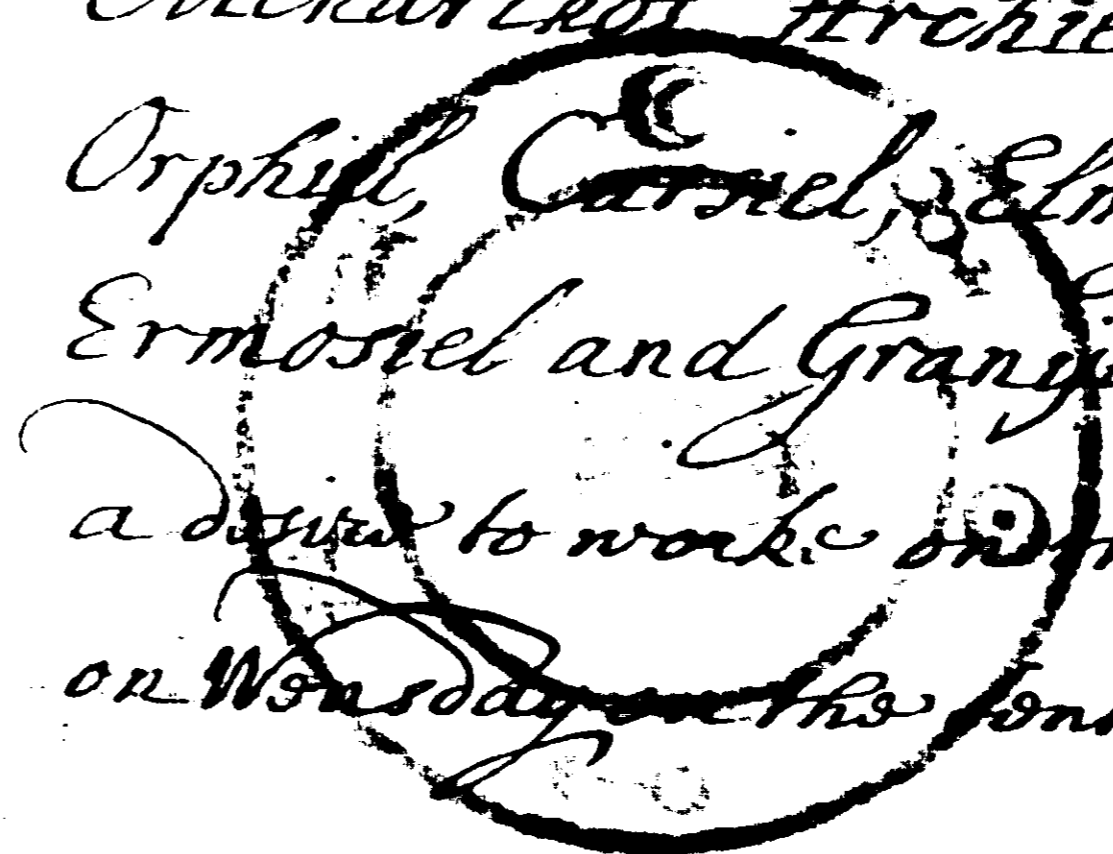 Orphiel, Carsiel, Elm
Ermosiel and Grany
a desire to worke on
on Wensday on the